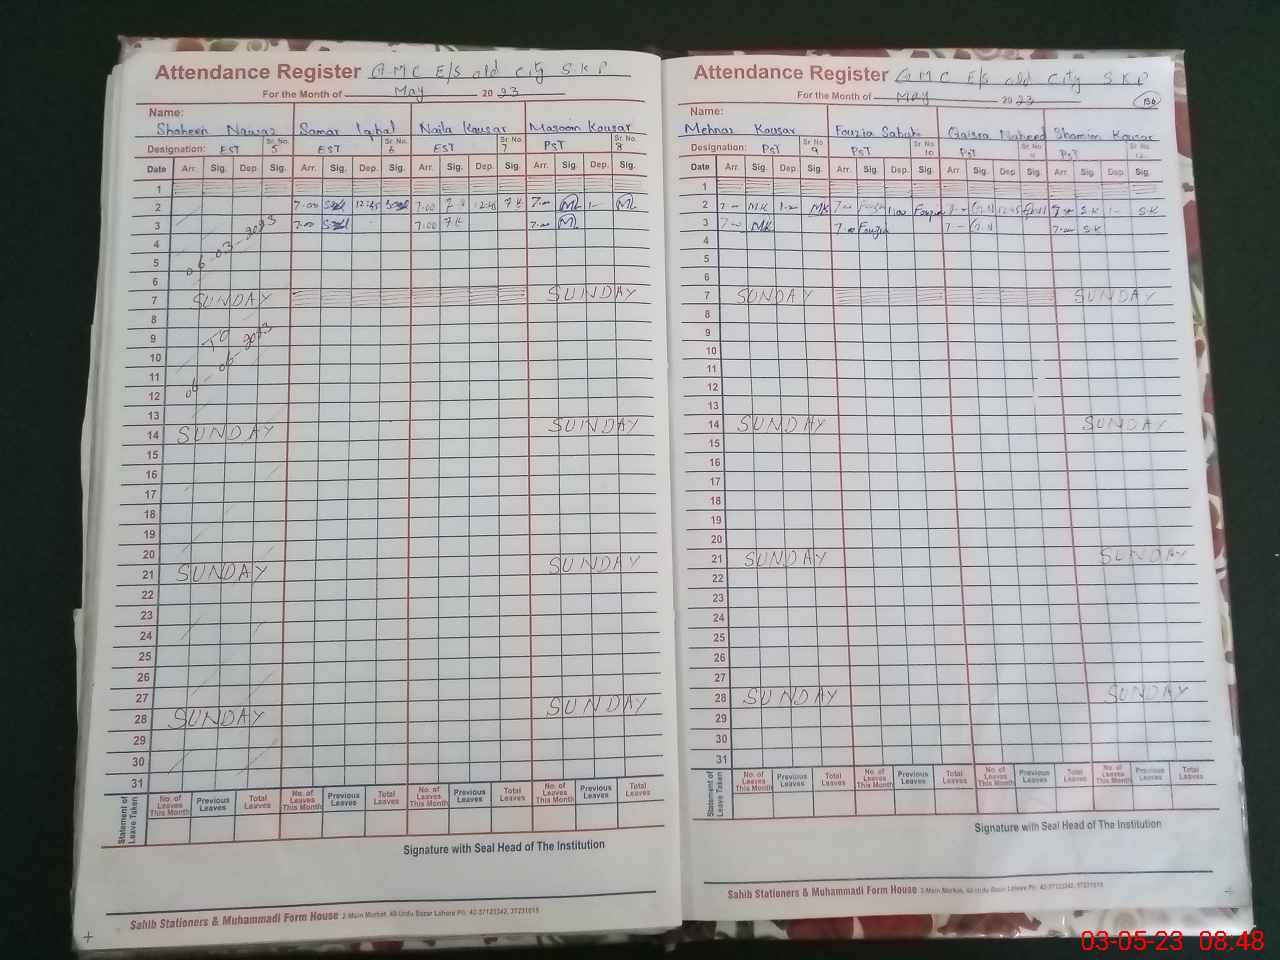 Attendance Register GMC E/S old city S.K.P
For the Month of May 20 23
Name:
Shaheen Nawaz Samar Iqbal Naila Kousar Masoom Kousar
Designation: EST Sr. No. 5 EST Sr. No. 6 EST Sr. No. 7 PST Sr. No. 8
Date Arr. Sig. Dep. Sig. Arr. Sig. Dep. Sig. Arr. Sig. Dep. Sig. Arr. Sig. Dep. Sig.
1
2 7.00 12:45 7.00 12:45 7.00 1-
3 7.00 7.00 7.00
06-03-2023
4
5
6
7 SUNDAY SUNDAY
8
9 TO
10 06-06-2023
11
12
13
14 SUNDAY SUNDAY
15
16
17
18
19
20
21 SUNDAY SUNDAY
22
23
24
25
26
27
28 SUNDAY SUNDAY
29
30
31
Statement of Leave Taken
No. of Leaves This Month Previous Leaves Total Leaves No. of Leaves This Month Previous Leaves Total Leaves No. of Leaves This Month Previous Leaves Total Leaves No. of Leaves This Month Previous Leaves Total Leaves
Signature with Seal Head of The Institution
Sahib Stationers & Muhammadi Form House 2-Main Market, 40-Urdu Bazar Lahore Ph: 42-37123342, 37231015
Attendance Register GMC E/S old city S K P
For the Month of May 20 23
Name:
Mehnaz Kousar Fouzia Qaisra Naheed Shamim Kousar
Designation: PST Sr. No. 9 PST Sr. No. 10 PST Sr. No. 11 PST Sr. No. 12
Date Arr. Sig. Dep. Sig. Arr. Sig. Dep. Sig. Arr. Sig. Dep. Sig. Arr. Sig. Dep. Sig.
1
2 7.- MK 1.- MK 7.00 Fouzia 1.00 Fouzia 7.- G.N 12:45 7.00 S.K 1- S.K
3 7.00 MK 7.00 Fouzia 7.- G.N 7.00 S.K
4
5
6
7 SUNDAY SUNDAY
8
9
10
11
12
13
14 SUNDAY SUNDAY
15
16
17
18
19
20
21 SUNDAY SUNDAY
22
23
24
25
26
27
28 SUNDAY SUNDAY
29
30
31
Statement of Leave Taken
No. of Leaves This Month Previous Leaves Total Leaves No. of Leaves This Month Previous Leaves Total Leaves No. of Leaves This Month Previous Leaves Total Leaves No. of Leaves This Month Previous Leaves Total Leaves
Signature with Seal Head of The Institution
Sahib Stationers & Muhammadi Form House 2-Main Market, 40-Urdu Bazar Lahore Ph: 42-37123342, 37231015
03-05-23 08:48